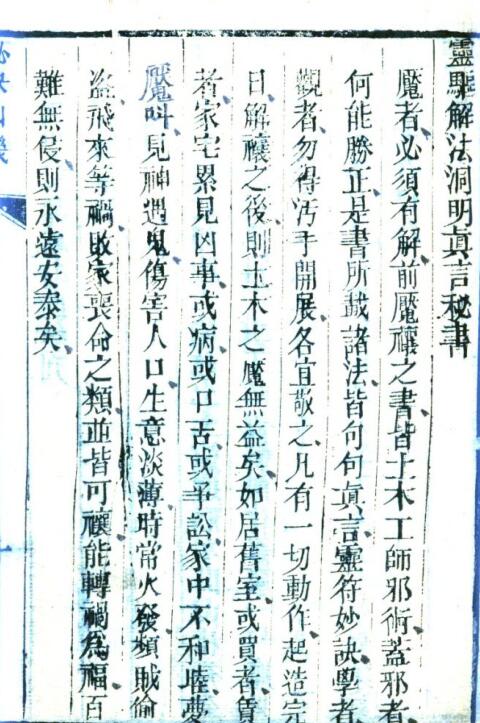 靈驅解法洞明眞言秘書
魘者必須有解前魘禳之書皆土木工師邪術蓋邪者
何能勝正是書所載諸法皆句句眞言靈符妙訣學者
觀者勿得汚手開展各宜敬之凡有一切動作起造完
日解禳之後則土木之魘無益矣如居舊室或買者賃
者家宅累見凶事或病或口舌或爭訟家中不和睦夢
魘叫見神遇鬼傷害人口生意淡薄時常火發頻賊偷
盜飛來等禍敗家喪命之類並皆可禳能轉禍爲福百
難無侵則永遠安泰矣